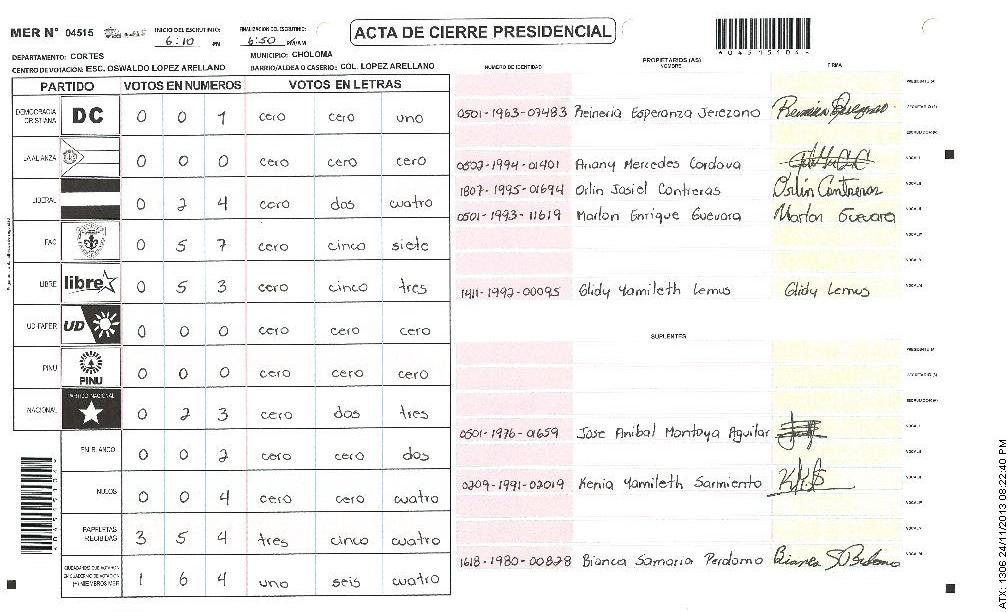 MER Nº 04515
INICIO DEL ESCRUTINIO: 6:10 PM
FINALIZACION DEL ESCRUTINIO: 6:50 PM/AM
ACTA DE CIERRE PRESIDENCIAL
DEPARTAMENTO: CORTES
MUNICIPIO: CHOLOMA
CENTRO DE VOTACION: ESC. OSWALDO LOPEZ ARELLANO
BARRIO/ALDEA O CASERIO: COL. LOPEZ ARELLANO
PARTIDO VOTOS EN NUMEROS VOTOS EN LETRAS
DEMOCRACIA CRISTIANA DC 0 0 1 cero cero uno
LA ALIANZA 0 0 0 cero cero cero
LIBERAL 0 2 4 cero dos cuatro
PAC 0 5 7 cero cinco siete
LIBRE libre 0 5 3 cero cinco tres
UD-FAPER UD 0 0 0 cero cero cero
PINU PINU 0 0 0 cero cero cero
NACIONAL PARTIDO NACIONAL 0 2 3 cero dos tres
EN BLANCO 0 0 2 cero cero dos
NULOS 0 0 4 cero cero cuatro
PAPELETAS RECIBIDAS 3 5 4 tres cinco cuatro
CIUDADANOS QUE VOTARON
EN CUADERNO DE VOTACION
(+) MIEMBROS MER 1 6 4 uno seis cuatro
PROPIETARIOS (AS)
NUMERO DE IDENTIDAD NOMBRE FIRMA
0501-1963-07483 Reineria Esperanza Jerezano
0502-1994-01401 Ariany Mercedes Cordova
1807-1995-01694 Orlin Josiel Contreras Orlin Contreras
0501-1993-11619 Marlon Enrique Guevara Marlon Guevara
1411-1992-00095 Glidy Yamileth Lemus Glidy Lemus
SUPLENTES
0501-1976-01659 Jose Anibal Montoya Aguilar
0209-1991-02019 Kenia Yamileth Sarmiento
1618-1980-00828 Bianca Samaria Perdomo
ATX: 1306 24/11/2013 08:22:40 PM